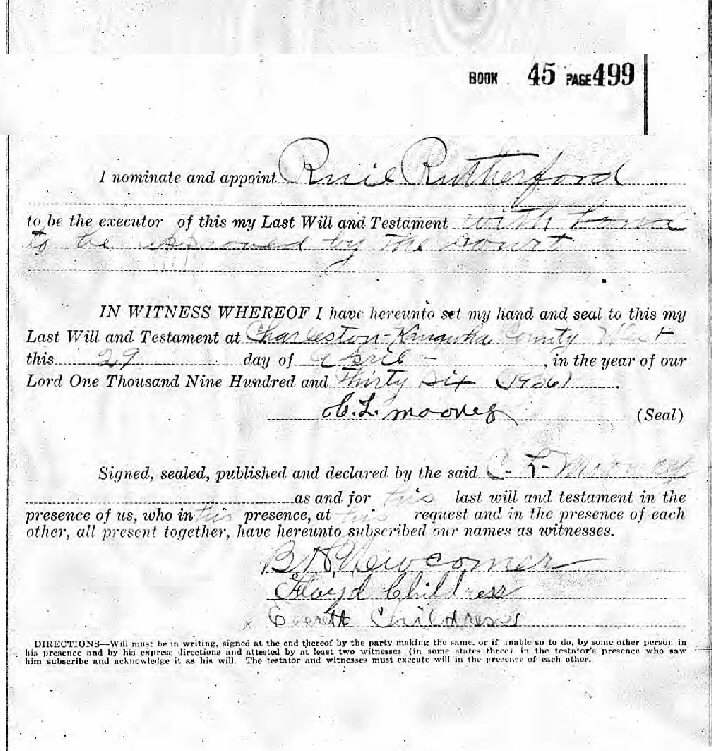 BOOK 45 PAGE 499
I nominate and appoint Rutherford
to be the executor of this my Last Will and Testament with bond
to be approved by the court
IN WITNESS WHEREOF I have hereunto set my hand and seal to this my
Last Will and Testament at Charleston-Kanawha County West
this 29 day of April - , in the year of our
Lord One Thousand Nine Hundred and Thirty Six (1936) .
C. L. Mooney (Seal)
Signed, sealed, published and declared by the said C. L. Mooney
as and for his last will and testament in the
presence of us, who in his presence, at his request and in the presence of each
other, all present together, have hereunto subscribed our names as witnesses.
Newcomer
Floyd Childress
Everett Childress
DIRECTIONS—Will must be in writing, signed at the end thereof by the party making the same, or if unable so to do, by some other person in
his presence and by his express directions and attested by at least two witnesses (in some states three) in the testator's presence who saw
him subscribe and acknowledge it as his will. The testator and witnesses must execute will in the presence of each other.